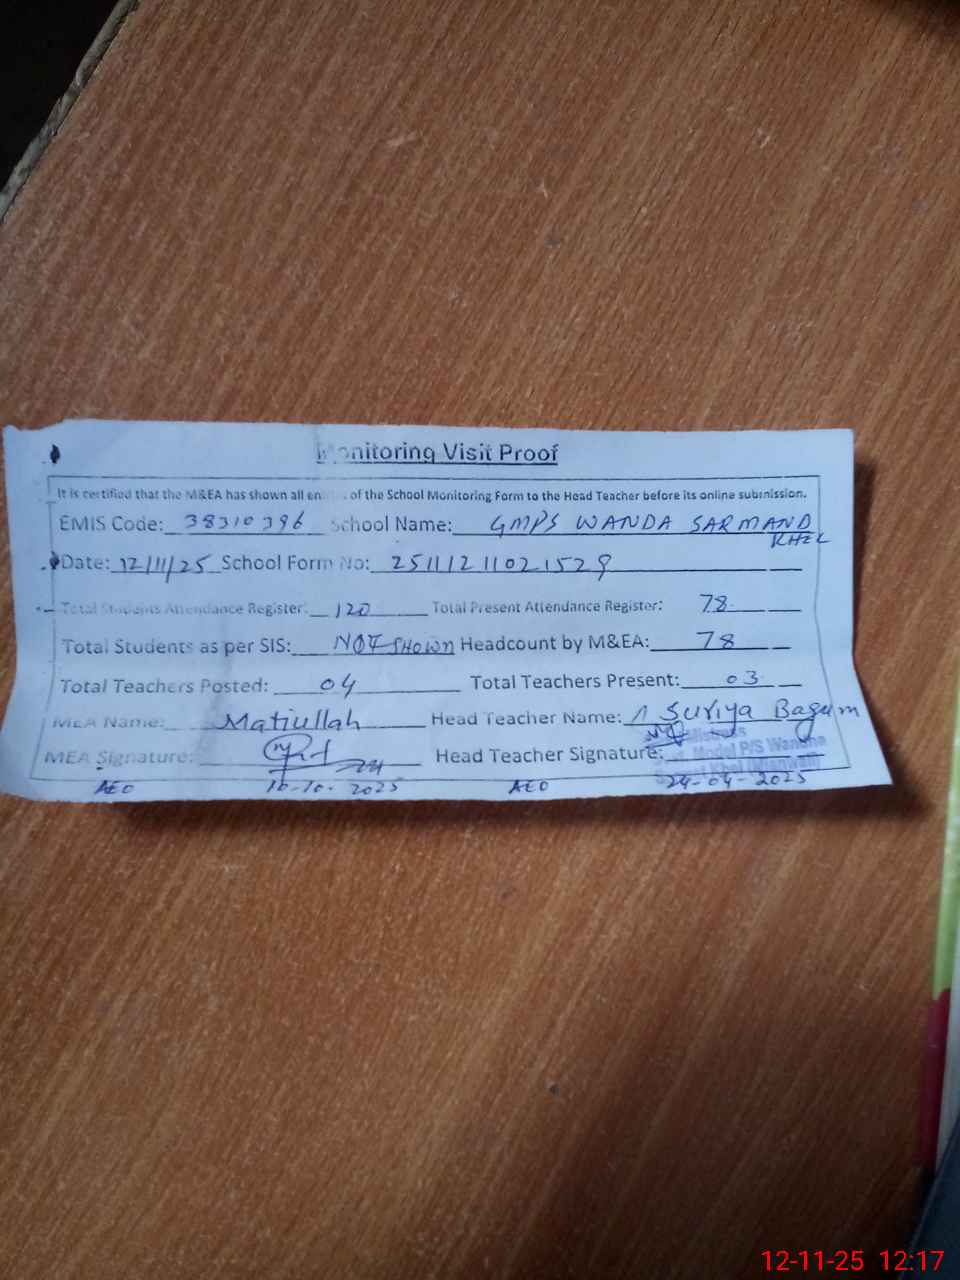 Monitoring Visit Proof
It is certified that the M&EA has shown all entries of the School Monitoring Form to the Head Teacher before its online submission.
EMIS Code: 38310396 School Name: GMPS WANDA SARMAND
KHEL
Date: 12/11/25 School Form No: 25111211021529
Total Students Attendance Register: 120 Total Present Attendance Register: 78
Total Students as per SIS: NOT SHOWN Headcount by M&EA: 78
Total Teachers Posted: 04 Total Teachers Present: 03
MEA Name: Matiullah Head Teacher Name: Suriya Bagum
MEA Signature: Head Teacher Signature:
Mistress
Govt. Model P/S Wandha
Khel (Mianwali)
AEO 10-10-2025 AEO 24-04-2025
12-11-25 12:17